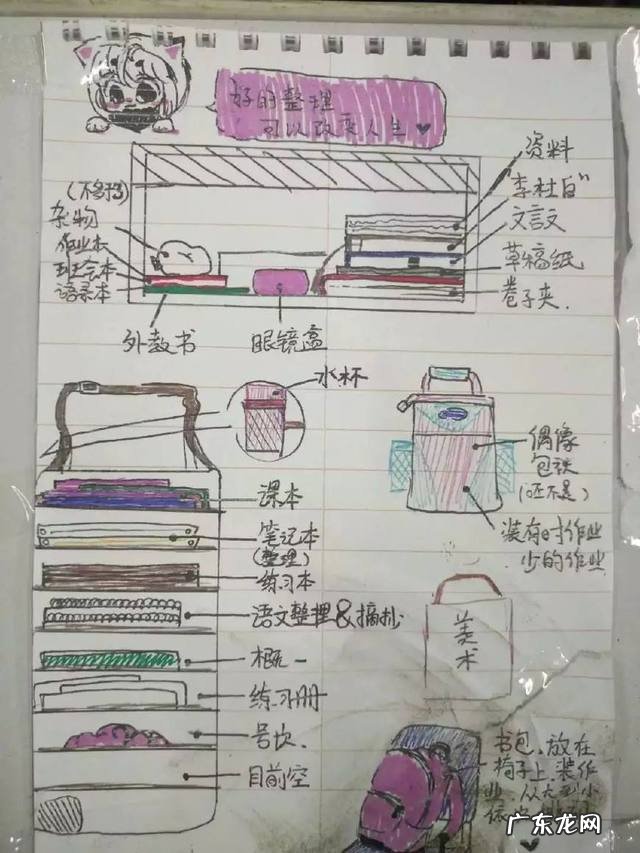 好的整理
可以改变人生
资料
"李杜白"
文言文
草稿纸
卷子夹.
杂物
作业本
班会本
语录本
外教书
眼镜盒
水杯
课本
笔记本
(整理)
练习本
语文整理&摘抄
概一
练习册
号坎.
目前空
偶像
包袱
(还不是)
装有时作业
少的作业
美术
书包,放在
椅子上,装作
业,从大到小
广东龙网